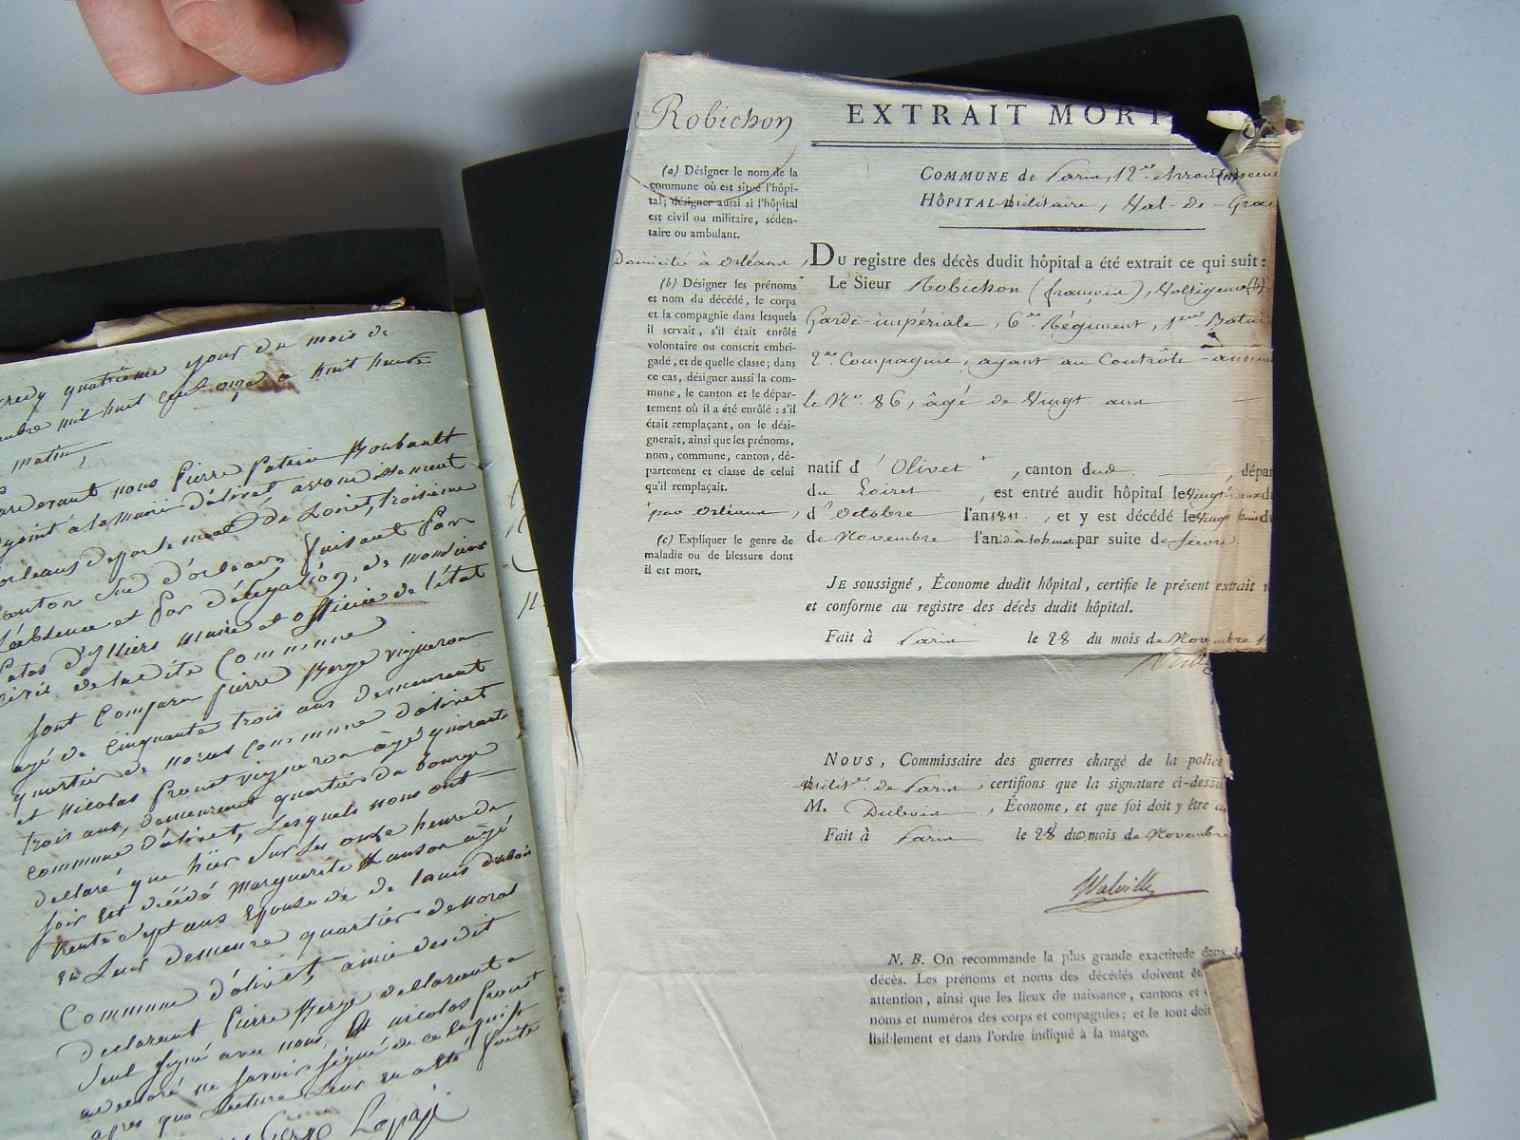 quatrième jour du mois de
mil huit cent onze a huit heures
matin,
pardevant nous Pierre Patrice Boubault
adjoint à la mairie d'olivet, arrondissement
orleans departement de Loiret, troisième
canton sud d'orleans faisant par
l'absence et par délégation, de monsieur
maire et officier de l'état
civil de ladite Commune
sont Comparu pierre Berge vigneron
agé de Cinquante trois ans demeurant
quartier de noras Commune d'olivet
et nicolas prout vigneron agé quarante
trois ans, demeurant quartier du bourg
commune d'olivet, Lesquels nous ont
declaré que hier sur les onze heure du
soir est décédé marguerite âgé
trente sept ans Epouse de louis dubois
en Leur demeure quartier de noras
Commune d'olivet, amie desdit
declarant Pierre Berge declarant a
seul signé avec nous, et nicolas prout
a declaré ne savoir signé de ce Requist
apres que Lecture Leur en a été faite
Robichon
EXTRAIT MORT
(a) Désigner le nom de la
commune où est situé l'hôpi-
tal; désigner aussi si l'hôpital
est civil ou militaire, séden-
taire ou ambulant.
COMMUNE de Paris, 12me Arrondissement
HÔPITAL militaire, Val-de-Grace
Domicilié à Orléans,
DU registre des décès dudit hôpital a été extrait ce qui suit:
Le Sieur Robichon (françois), Voltigeur (b)
Garde-impériale, 6me Régiment, 1er Batai
2me Compagnie, ayant au Contrôle annuel
le No. 86, âgé de Vingt ans
(b) Désigner les prénoms
et nom du décédé, le corps
et la compagnie dans lesquels
il servait, s'il était enrôlé
volontaire ou conscrit embri-
gadé, et de quelle classe; dans
ce cas, désigner aussi la com-
mune, le canton et le dépar-
tement où il a été enrôlé: s'il
était remplaçant, on le dési-
gnerait, ainsi que les prénoms,
nom, commune, canton, dé-
partement et classe de celui
qu'il remplaçait.
natif d'Olivet, canton dud. , dépar
du Loiret , est entré audit hôpital le vingt deux du
par Orléans,
d'Octobre l'an 1811 , et y est décédé le vingt huit du
de Novembre l'an par suite de fievre.
(c) Expliquer le genre de
maladie ou de blessure dont
il est mort.
JE soussigné, Économe dudit hôpital, certifie le présent extrait
et conforme au registre des décès dudit hôpital.
Fait à Paris le 28 du mois de Novembre
NOUS, Commissaire des guerres chargé de la police
milit.re de Paris , certifions que la signature ci-dessu
M. Dubois , Économe, et que foi doit y être
Fait à Paris le 28 du mois de Novembre
Malville
N. B. On recommande la plus grande exactitude dans
décès. Les prénoms et noms des décédés doivent êt
attention, ainsi que les lieux de naissance, cantons et
noms et numéros des corps et compagnies; et le tout doit
lisiblement et dans l'ordre indiqué à la marge.